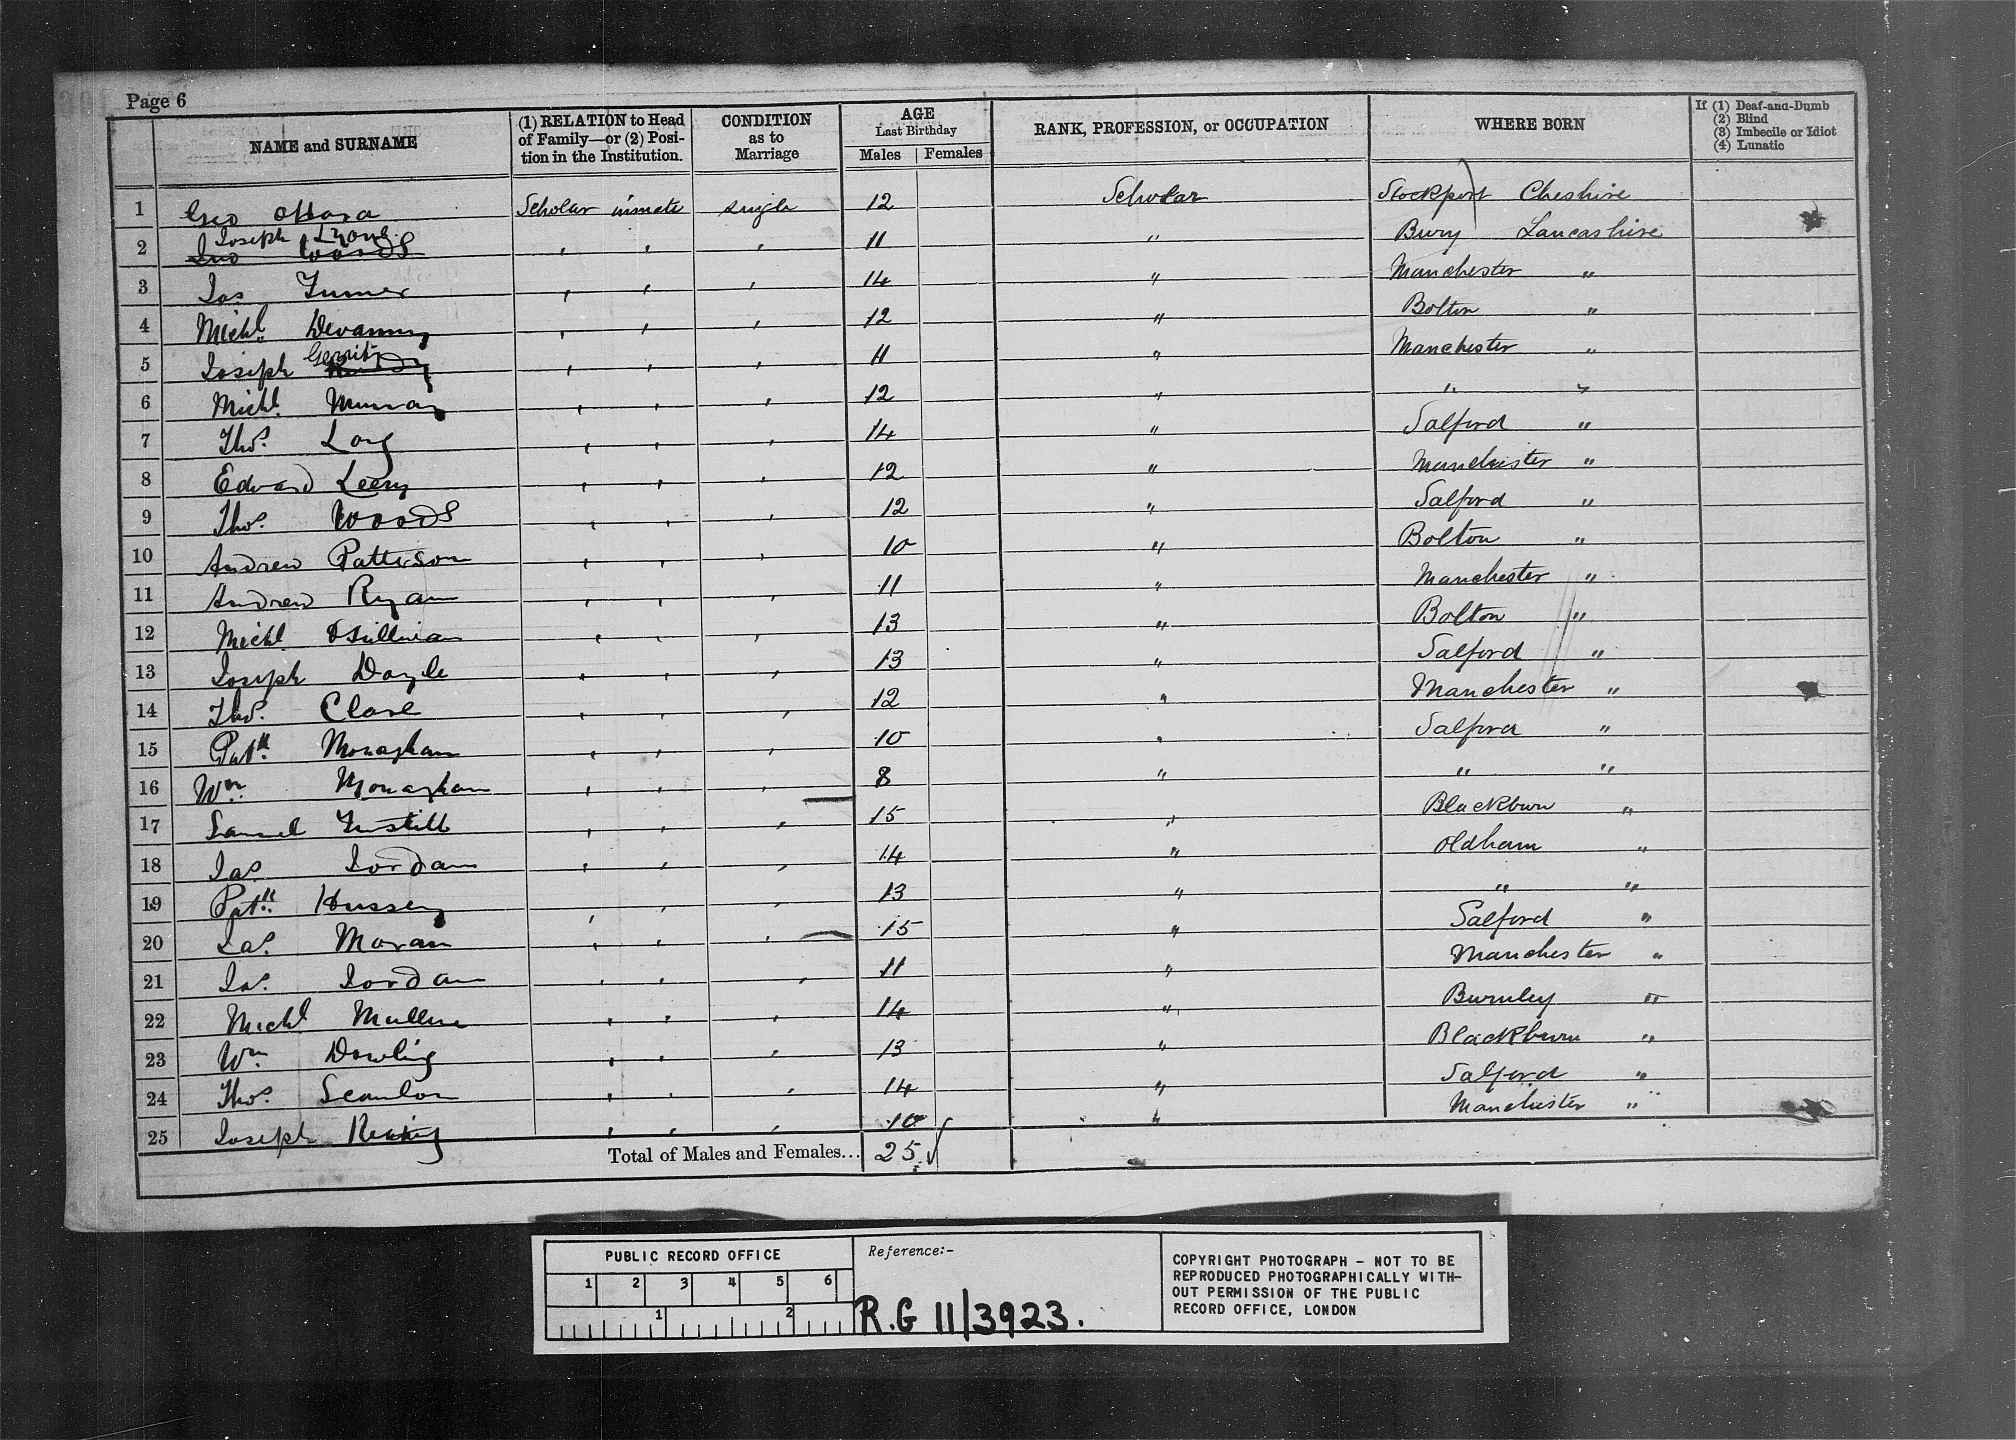 Page 6
NAME and SURNAME
(1) RELATION to Head of Family—or (2) Position in the Institution.
CONDITION as to Marriage
AGE Last Birthday
Males | Females
RANK, PROFESSION, or OCCUPATION
WHERE BORN
If (1) Deaf-and-Dumb
(2) Blind
(3) Imbecile or Idiot
(4) Lunatic
1 Geo OHara Scholar inmate single 12 Scholar Stockport Cheshire
2 Jno Woods Joseph Lyons , , , 11 " Bury Lancashire
3 Jas Turner , , , 14 " Manchester "
4 Michl. Devanny , , , 12 " Bolton "
5 Joseph Gerrity , , , 11 " Manchester "
6 Michl. Murray , , , 12 " " "
7 Thos. Long , , , 14 " Salford "
8 Edward Leery , , , 12 " Manchester "
9 Thos. Woods , , , 12 " Salford "
10 Andrew Patterson , , , 10 " Bolton "
11 Andrew Ryan , , , 11 " Manchester "
12 Michl OSullivan , , , 13 " Bolton "
13 Joseph Doyle , , , 13 " Salford "
14 Thos. Clare , , , 12 " Manchester "
15 Patk. Monaghan , , , 10 " Salford "
16 Wm. Monaghan , , , 8 " " "
17 Samuel , , , 15 " Blackburn "
18 Jas. Jordan , , , 14 " Oldham "
19 Patk. Hussey , , , 13 " " "
20 Jas. Moran , , , 15 " Salford "
21 Jas. Jordan , , , 11 " Manchester "
22 Michl Mullen , , , 14 " Burnley "
23 Wm Dowling , , , 13 " Blackburn "
24 Thos. Scanlon , , , 14 " Salford "
25 Joseph , , , 10 " Manchester "
Total of Males and Females... 25
PUBLIC RECORD OFFICE
1 2 3 4 5 6
1 2
Reference:-
R.G 11/3923.
COPYRIGHT PHOTOGRAPH - NOT TO BE
REPRODUCED PHOTOGRAPHICALLY WITH-
OUT PERMISSION OF THE PUBLIC
RECORD OFFICE, LONDON